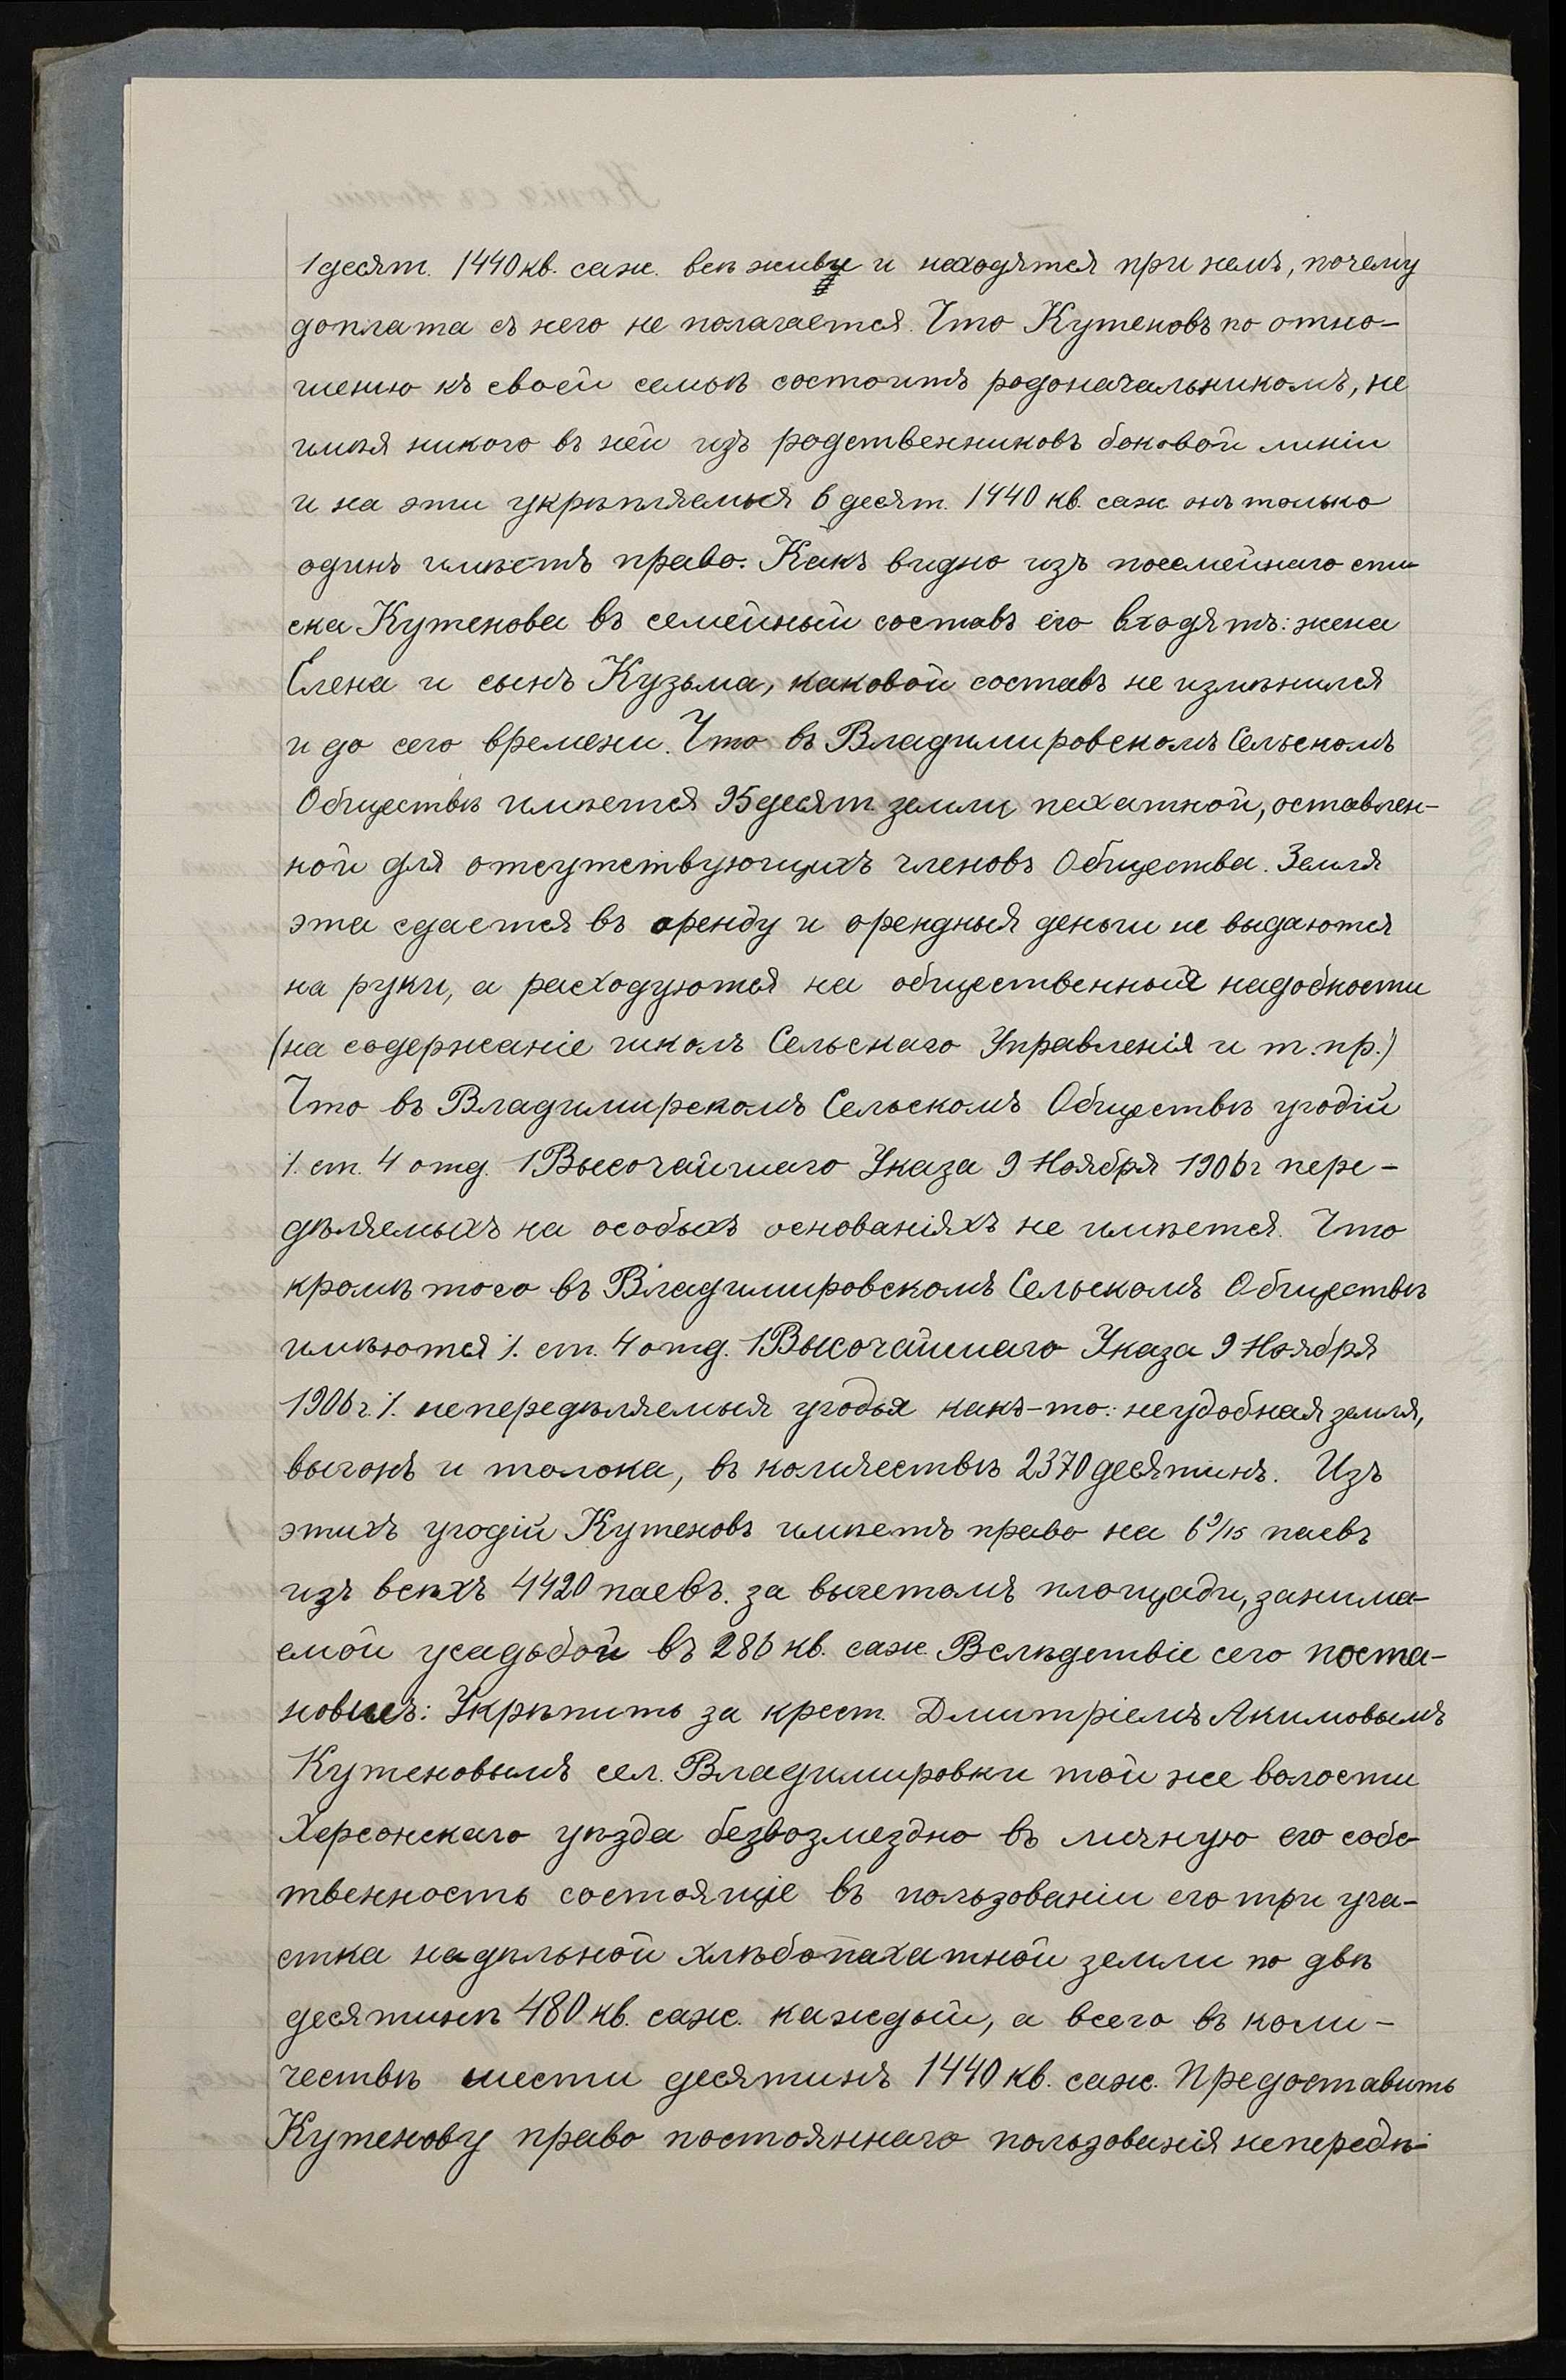 1 десят. 1440 кв. саж. всѣ живы и находятся при немъ, почему
доплата съ него не полагается. Что Кутеновъ по отно-
шенію къ своей семьѣ состоитъ родоначальникомъ, не
имѣя никого въ ней изъ родственниковъ боковой линіи
и на эти укрѣпляемыя 6 десят. 1440 кв. саж. онъ только
одинъ имѣетъ право. Какъ видно изъ посемейнаго спи-
ска Кутенова въ семейный составъ его входятъ: жена
Елена и сынъ Кузьма, каковой составъ не измѣнился
и до сего времени. Что въ Владимировскомъ Сельскомъ
Обществѣ имѣется 95 десят. земли пахатной, оставлен-
ной для отсутствующихъ членовъ Общества. Земля
эта сдается въ аренду и арендныя деньги не выдаются
на руки, а расходуются на общественныя надобности
(на содержаніе школъ Сельскаго Управленія и т. пр.)
Что въ Владимирскомъ Сельскомъ Обществѣ угодій
/. ст. 4 отд. 1 Высочайшаго Указа 9 Ноября 1906 г пере-
дѣляемыхъ на особыхъ основаніяхъ не имѣется. Что
кромѣ того въ Владимировскомъ Сельскомъ Обществѣ
имѣются /. ст. 4 отд. 1 Высочайшаго Указа 9 Ноября
1906 г. /. непередѣляемыя угодья какъ-то: неудобная земля,
выгонъ и толока, въ количествѣ 2370 десятинъ. Изъ
этихъ угодій Кутеновъ имѣетъ право на 6 9/15 паевъ
изъ всѣхъ 4420 паевъ. за вычетомъ площади, занима-
емой усадьбой въ 286 кв. саж. Вслѣдствіе сего поста-
новилъ: Укрѣпить за крест. Дмитріемъ Акимовымъ
Кутеновымъ сел. Владимировки той же волости
Херсонскаго уѣзда безвозмездно въ личную его собс-
твенность состоящіе въ пользованіи его три уча-
стка надѣльной хлѣбопахатной земли по двѣ
десятинѣ 480 кв. саж. каждый, а всего въ коли-
чествѣ шести десятинъ 1440 кв. саж. Предоставить
Кутенову право постояннаго пользованія непередѣ-